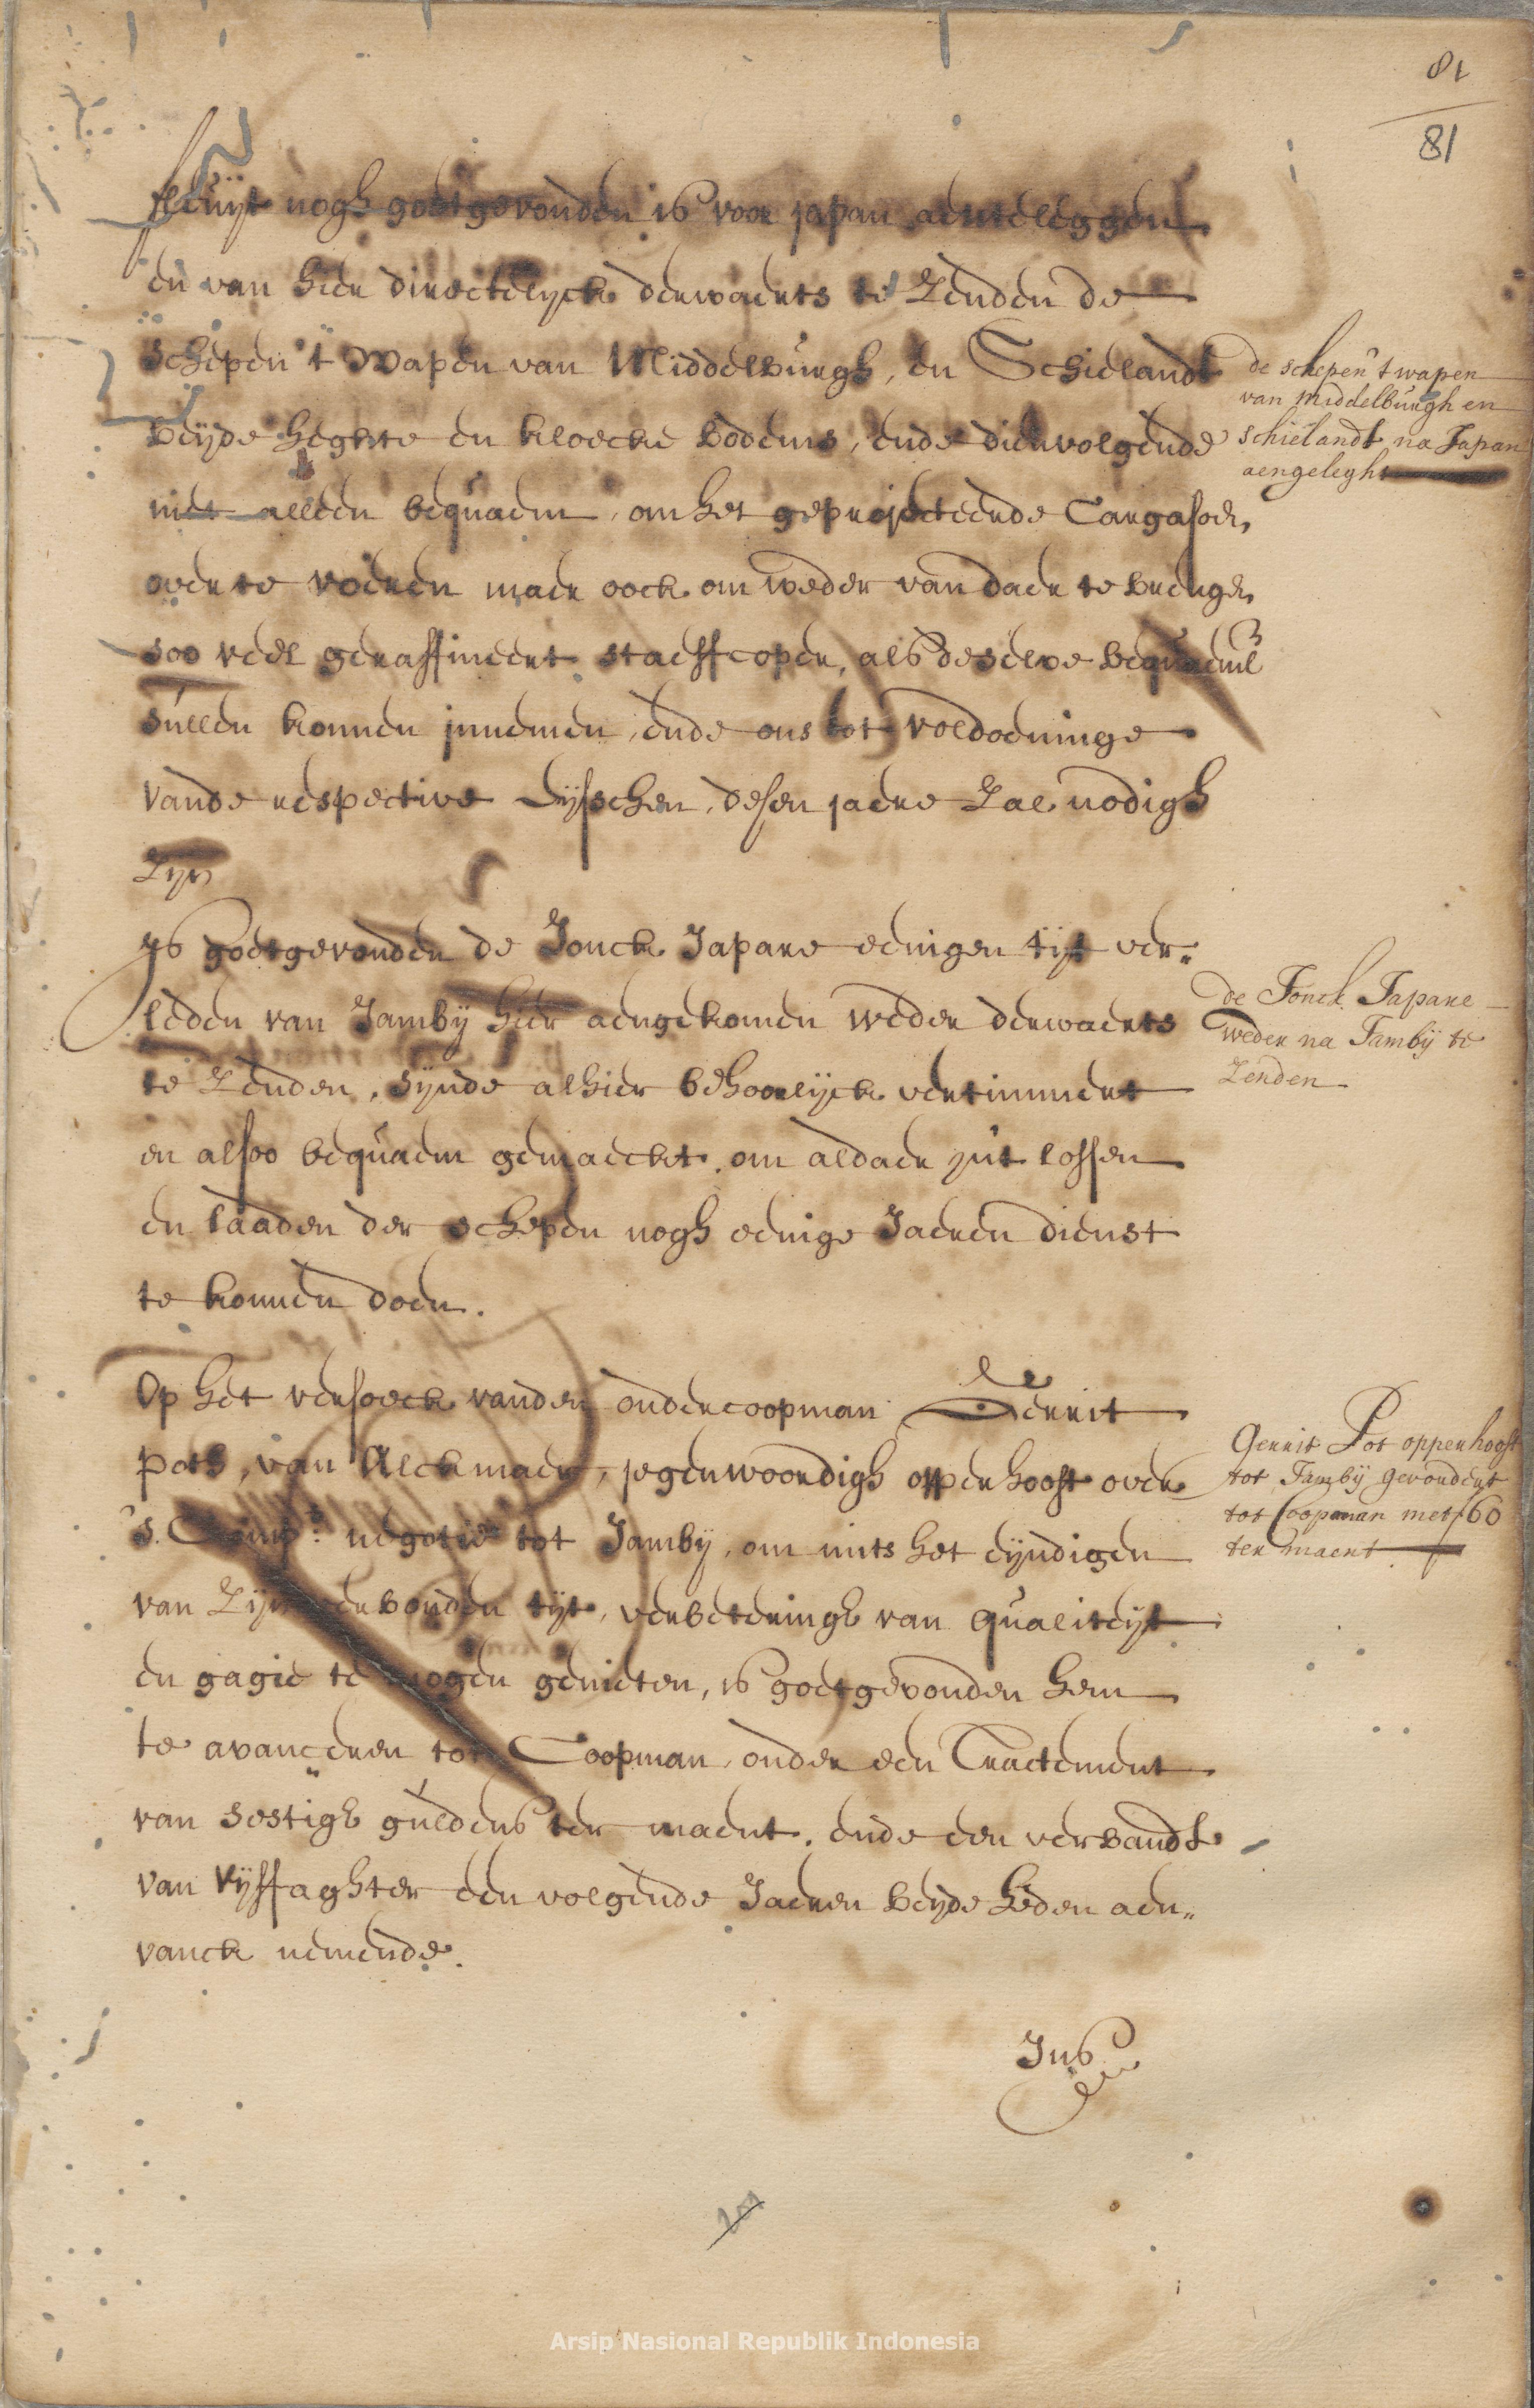 81
81
fluyt nogh goetgevonden is voor japan aenteleggen
en van hier directelyck derwaerts te Zenden de
Schepen 't Wapen van Middelburgh, en Schielandt
beyde heghte en kloecke bodems, ende dienvolgende
niet alleen bequaem, om het geprojecteerde Cargasoen
over te voeren maer oock om weder van daer te brengen
soo veel geraffineert staeffcoper, als deselve bequaeml
sullen konnen innemen, ende ons tot voldoeninge
vande respective Eysschen, desen jaere Zal nodigh
Zyn
Is goetgevonden de Jonck Japare eenigen tijt ver„
leden van Jamby hier aengekomen weder derwaerts
te Zenden, synde alhier behoorlijck vertimmert
en alsoo bequaem gemaeckt, om aldaer in't lossen
en laaden der schepen nogh eenige Jaeren dienst
te konnen doen.
Op het versoeck vanden ondercoopman Gerrit
Poth, van Alckmaer, jegenwoordigh opperhooft over
's Comps: negotie tot Jamby, om mits het eyndigen
van Zijn verbonden tijt, verbeteringh van qualiteyt
en gagie te mogen genieten, is goetgevonden hem
te avanceren tot Coopman, onder een Tractement
van sestigh guldens ter maent, ende een verbandt
van vyff aghter een volgende Jaeren beyde heden aen„
vanck nemende.
Ins
de schepen 't wapen
van middelburgh en
schielandt na Japan
aengeleght
de Jonck Japare
weder na Jamby te
Zenden
Gerrit Pot opperhooft
tot Jamby gevordert
tot Coopman met f 60
ter maent
Arsip Nasional Republik Indonesia